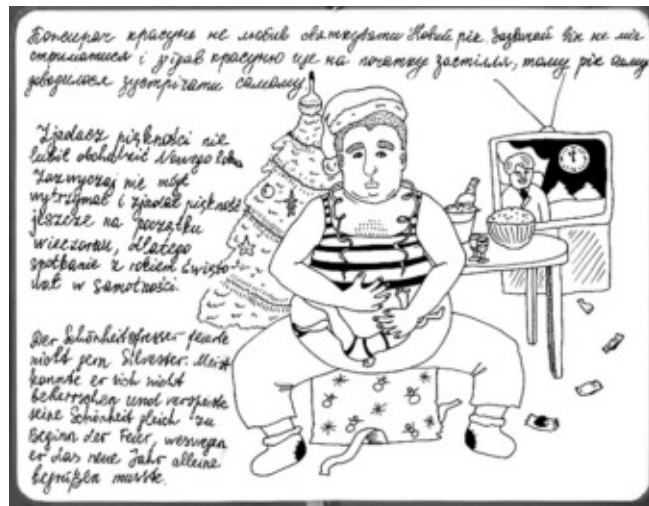 Пожирач красунь не любив святкувати Новий рік. Зазвичай він не міг
стриматися і з'їдав красуню ще на початку застілля, тому рік йому
доводилося зустрічати самому.
Zjadacz piękności nie
lubił obchodzić Nowego Roku
Zazwyczaj nie mógł
wytrzymać i zjadał piękność
jeszcze na początku
wieczoru, dlatego
spotkanie z rokiem święto-
wał w samotności.
Der Schönheitsfresser feierte
nicht gern Silvester. Meist
konnte er sich nicht
beherrschen und verspeiste
seine Schönheit gleich zu
Beginn der Feier, weswegen
er das neue Jahr alleine
begrüßen musste.